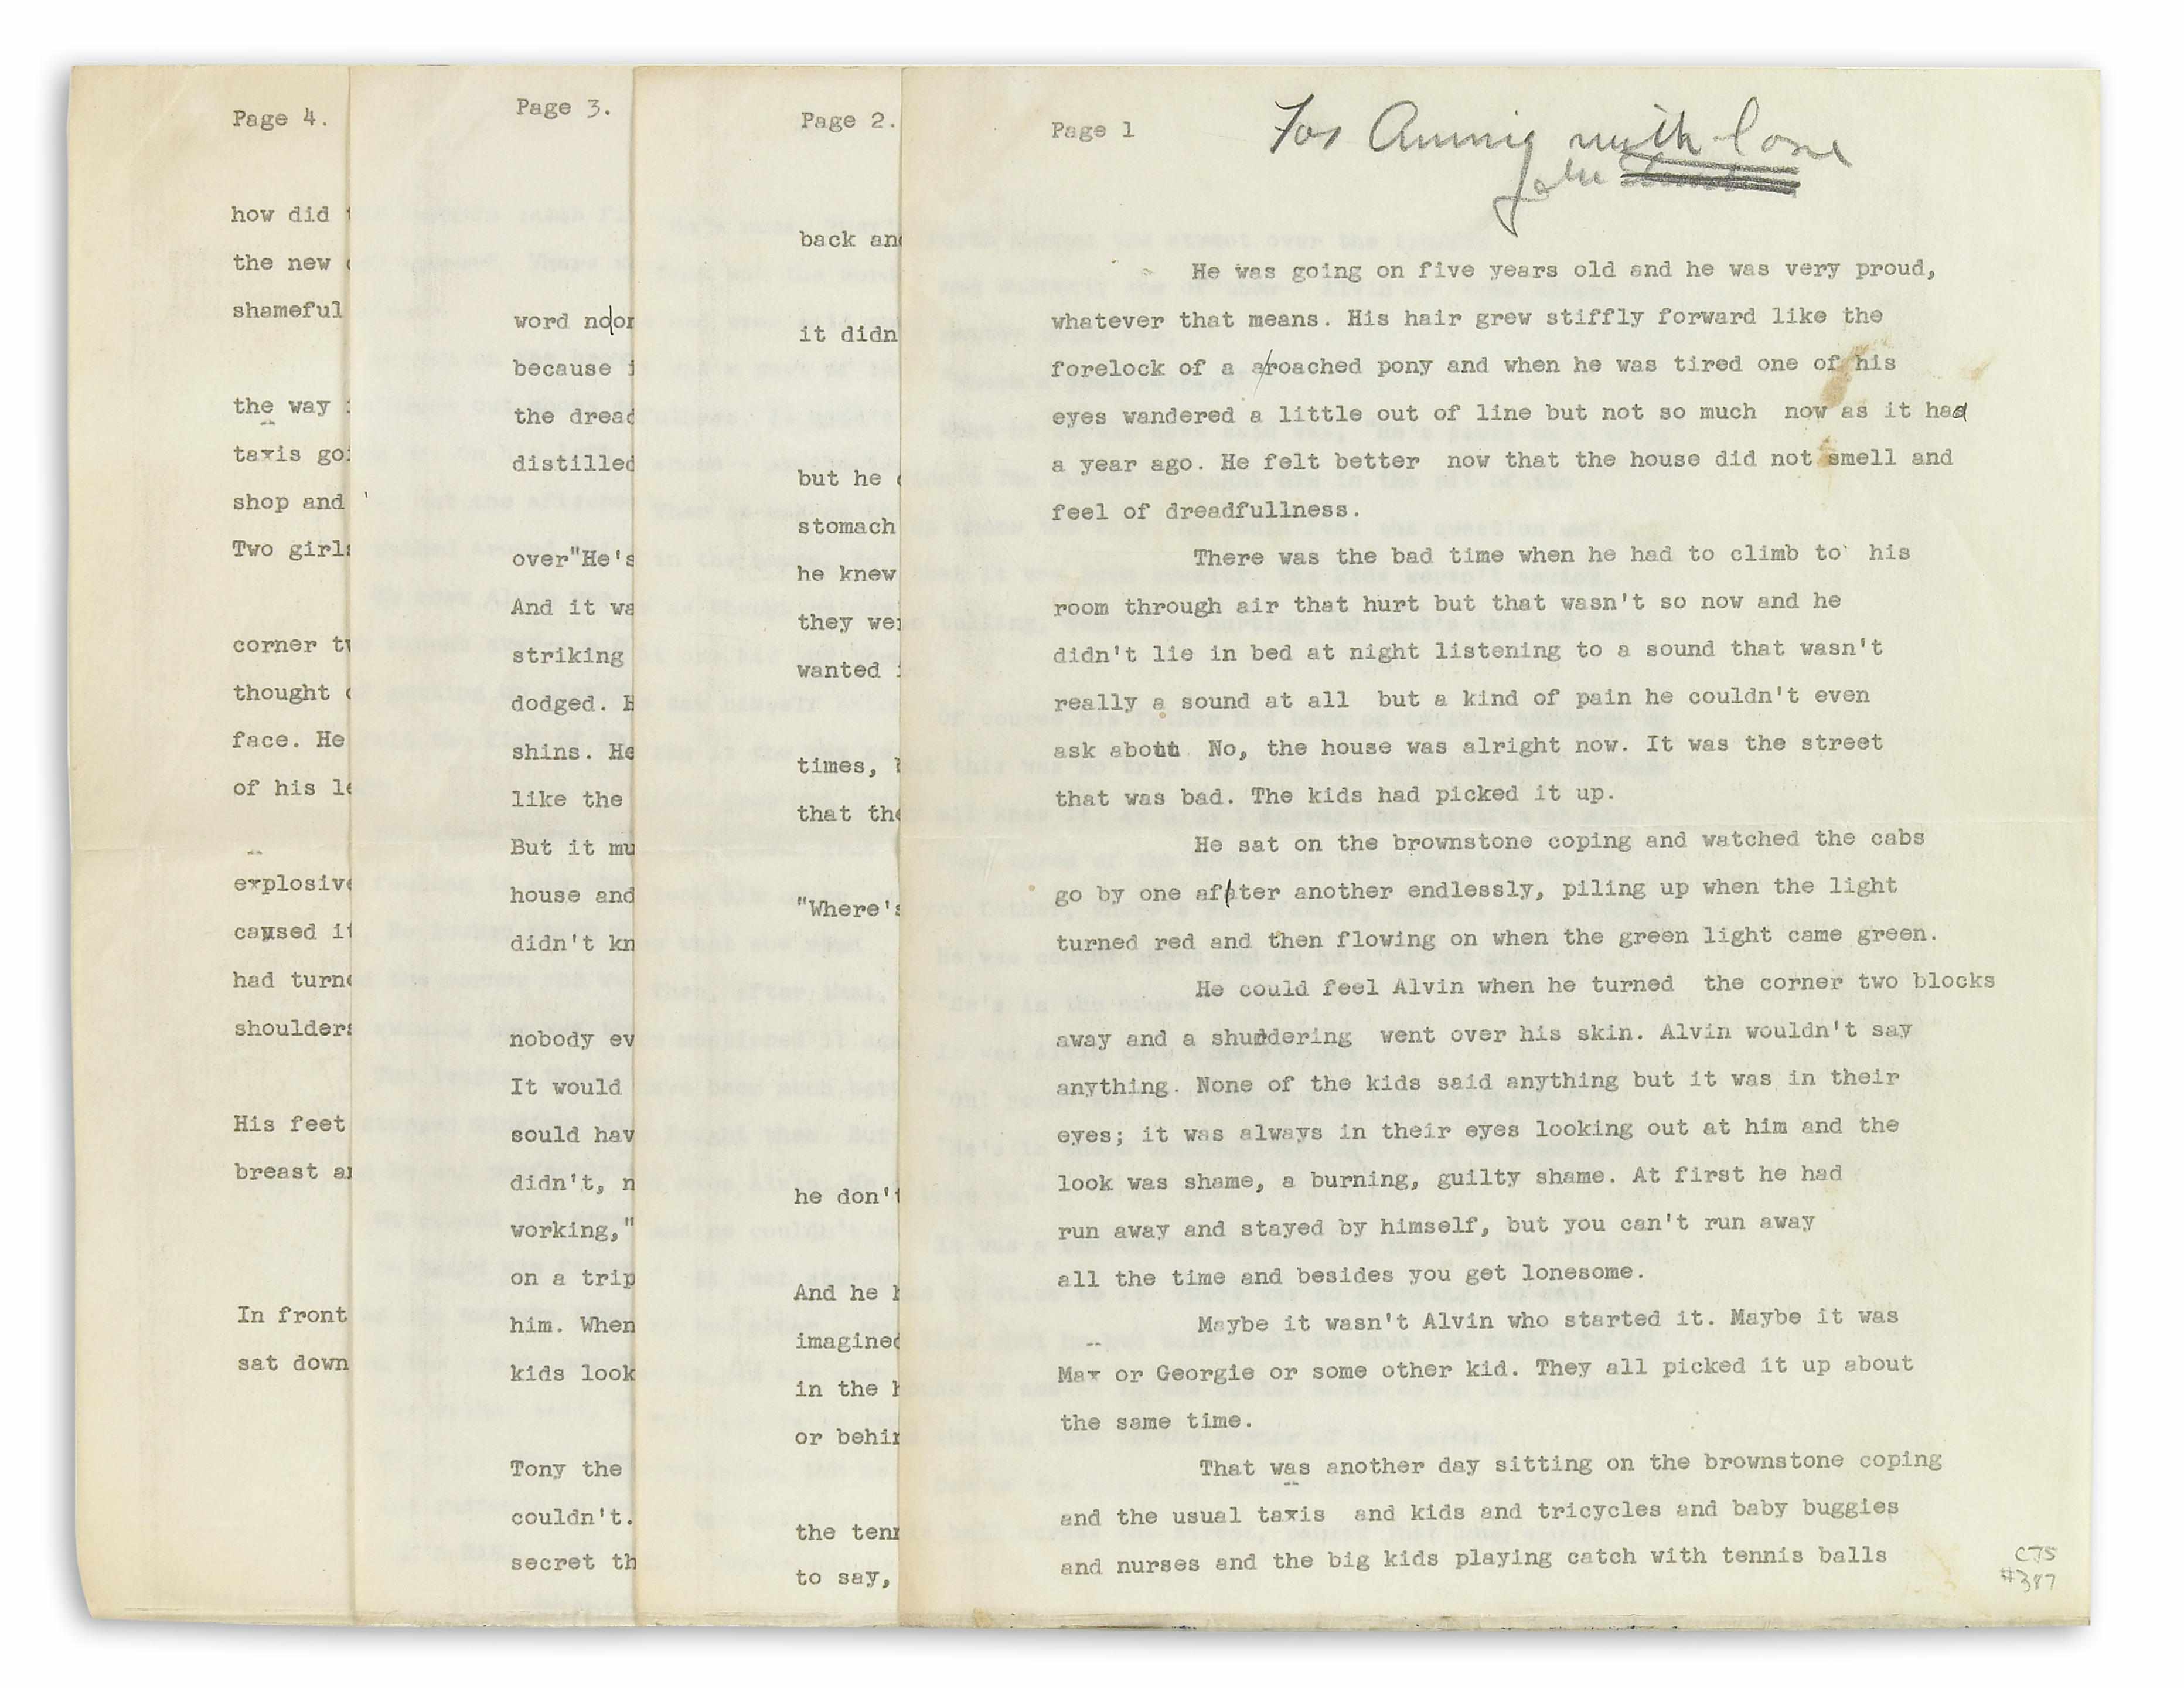 Page 4.
how did
the new
shameful
the way
taxis goi
shop and
Two girls
corner tw
thought
face. He
of his le
explosive
caused it
had turne
shoulders
His feet
breast an
In front
sat down
Page 3.
word ndor
because i
the dread
distilled
over"He's
And it wa
striking
dodged. H
shins. He
like the
But it mu
house and
didn't kn
nobody ev
It would
sould hav
didn't, n
working,"
on a trip
him. When
kids look
Tony the
couldn't.
secret th
Page 2.
back and
it didn
but he
stomach
he knew
they wer
wanted
times,
that the
"Where's
he don't
And he h
imagined
in the h
or behin
the tenn
to say,
Page 1
For Annie with love
John
He was going on five years old and he was very proud,
whatever that means. His hair grew stiffly forward like the
forelock of a aroached pony and when he was tired one of his
eyes wandered a little out of line but not so much now as it had
a year ago. He felt better now that the house did not smell and
feel of dreadfullness.
There was the bad time when he had to climb to his
room through air that hurt but that wasn't so now and he
didn't lie in bed at night listening to a sound that wasn't
really a sound at all but a kind of pain he couldn't even
ask about No, the house was alright now. It was the street
that was bad. The kids had picked it up.
He sat on the brownstone coping and watched the cabs
go by one after another endlessly, piling up when the light
turned red and then flowing on when the green light came green.
He could feel Alvin when he turned the corner two blocks
away and a shuddering went over his skin. Alvin wouldn't say
anything. None of the kids said anything but it was in their
eyes; it was always in their eyes looking out at him and the
look was shame, a burning, guilty shame. At first he had
run away and stayed by himself, but you can't run away
all the time and besides you get lonesome.
Maybe it wasn't Alvin who started it. Maybe it was
Max or Georgie or some other kid. They all picked it up about
the same time.
That was another day sitting on the brownstone coping
and the usual taxis and kids and tricycles and baby buggies
and nurses and the big kids playing catch with tennis balls
CJS
#387